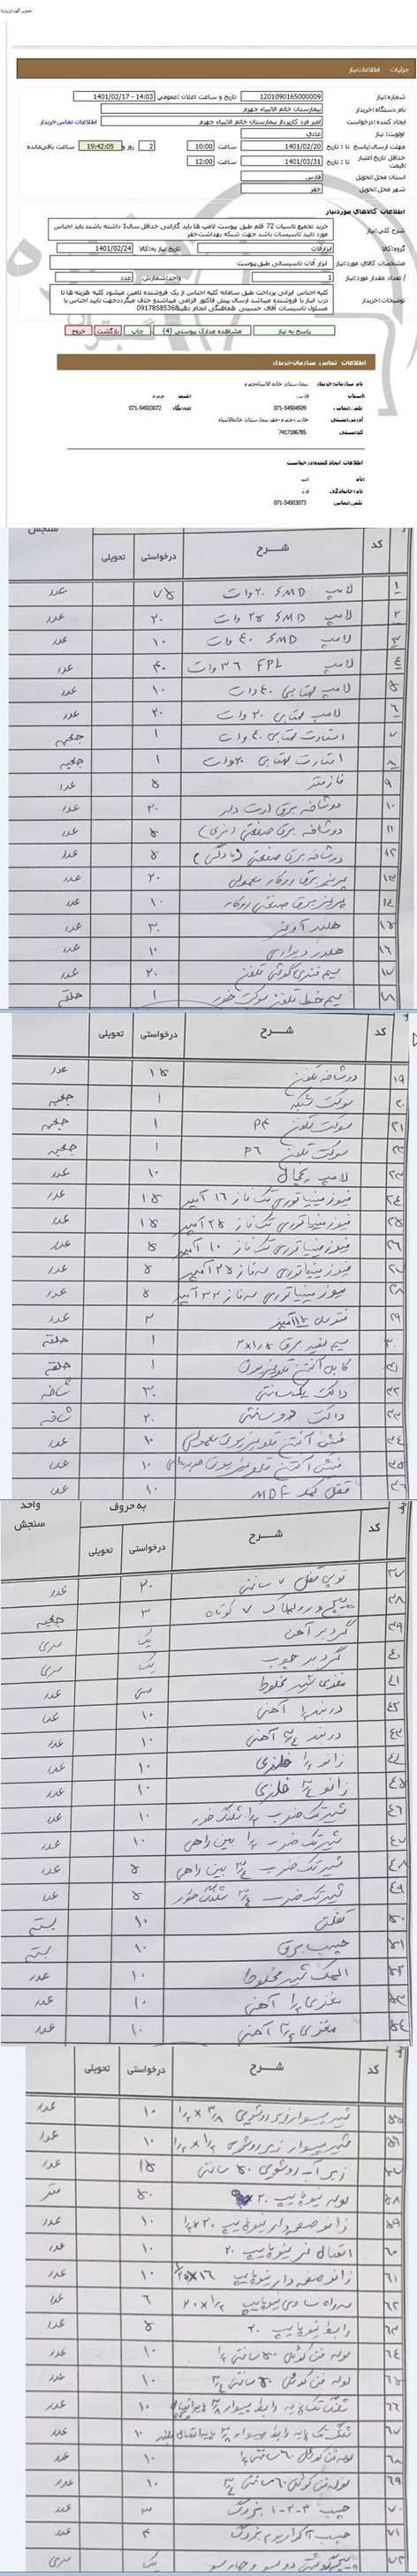 جزئیات اطلاعات نیاز
شماره نیاز: 1201090165000009
تاریخ و ساعت اعلان عمومی: 14:03 - 1401/02/17
نام دستگاه خریدار: بیمارستان خاتم الانبیاء جهرم
ایجاد کننده درخواست: امیر فرد کارپرداز بیمارستان خاتم الانبیاء جهرم
اطلاعات تماس خریدار
اولویت نیاز: عادی
مهلت ارسال پاسخ: تا تاریخ: 1401/02/20 ساعت 10:00
2 روز و 19:42:05 ساعت باقی‌مانده
حداقل تاریخ اعتبار قیمت: تا تاریخ: 1401/03/31 ساعت 12:00
استان محل تحویل: فارس
شهر محل تحویل: خفر
اطلاعات کالاهای موردنیاز
شرح کلی نیاز: خرید تجمیع تاسیات 72 قلم طبق پیوست لامپ ها باید گارانتی حداقل سال1 داشته باشند باید اجناس مورد تایید تاسیسات باشد جهت شبکه بهداشت خفر
گروه کالا: ابزارآلات
تاریخ نیاز به کالا: 1401/02/24
مشخصات کالای موردنیاز: ابزار آلات تاسیساتی طبق پیوست
تعداد مقدار موردنیاز: 1
واحد شمارش: عدد
توضیحات خریدار: کلیه اجناس ایرانی پرداخت طبق سامانه کلیه اجناس از یک فروشنده تامین میشود کلیه هزینه ها تا درب انبار با فروشنده میباشد ارسال پیش فاکتور الزامی میباشدو حذف میگرددجهت تایید اجناس با مسئول تاسیسات آقای حسینی هماهنگی انجام دهید09178585368
پاسخ به نیاز
مشاهده مدارک پیوستی (4)
چاپ
بازگشت
خروج
اطلاعات تماس سازمان خریدار
نام سازمان خریدار: بیمارستان خاتم الانبیاءجهرم
استان: فارس
شهر: جهرم
تلفن تماس: 071-54504509
دورنگار: 071-54503072
کد پستی: 7417186785
اطلاعات ایجاد کننده درخواست
نام: امیر
نام خانوادگی: فرد
تلفن تماس: 071-54503073
کد شرح درخواستی تحویلی سنجش
۱ لامپ SMD ۲۰ وات ۷۵ عدد
۲ لامپ SMD ۲۵ وات ۲۰ عدد
۳ لامپ SMD ۴۰ وات ۱۰ عدد
۴ لامپ FPL ۳۶ وات ۴۰ عدد
۵ لامپ مهتابی ۴۰ وات ۱۰ عدد
۶ لامپ مهتابی ۲۰ وات ۲۰ عدد
۷ استارت مهتابی ۴۰ وات ۱ جعبه
۸ استارت مهتابی ۲۰ وات ۱ جعبه
۹ فازمتر ۵ عدد
۱۰ دوشاخه برق ارت دار ۳۰ عدد
۱۱ دوشاخه برق صنعتی (نری) ۵ عدد
۱۲ دوشاخه برق صنعتی (مادگی) ۵ عدد
۱۳ پریز برق روکار معمولی ۲۰ عدد
۱۴ پریز برق صنعتی روکار ۱۰ عدد
۱۵ هلدر آویز ۳۰ عدد
۱۶ هلدر دیواری ۱۰ عدد
۱۷ سیم فنری گوشی تلفن ۲۰ عدد
۱۸ سیم خط تلفن سوکت خور ۱ حلقه
کد شرح درخواستی تحویلی
۱۹ دوشاخه تلفن ۱۵ عدد
۲۰ سوکت شبکه ۱ جعبه
۲۱ سوکت تلفن P۴ ۱ جعبه
۲۲ سوکت تلفن P۶ ۱ جعبه
۲۳ لامپ یخچال ۱۰ عدد
۲۴ فیوز مینیاتوری تک فاز ۱۶ آمپر ۱۵ عدد
۲۵ فیوز مینیاتوری تک فاز ۲۵ آمپر ۱۵ عدد
۲۶ فیوز مینیاتوری تک فاز ۱۰ آمپر ۵ عدد
۲۷ فیوز مینیاتوری سه فاز ۲۵ آمپر ۵ عدد
۲۸ فیوز مینیاتوری سه فاز ۳۲ آمپر ۵ عدد
۲۹ آمپر عدد
۳۰ سیم سفید برق ۲×۱/۵ ۱ حلقه
۳۱ کابل آنتن تلویزیون ۱ حلقه
۳۲ داکت یک سانتی ۳۰ شاخه
۳۳ داکت دو سانتی ۲۰ شاخه
۳۴ فیش آنتن تلویزیون معمولی ۱۰ عدد
۳۵ فیش آنتن تلویزیون ۱۰ عدد
۳۶ قفل کمد MDF ۱۰ عدد
کد شرح به حروف درخواستی تحویلی واحد سنجش
۳۷ توپی قفل ۷ سانتی ۲۰ عدد
۳۸ پیچ و رولپلاک ۷ کوتاه ۳ جعبه
۳۹ گردبر آهن یک سری
۴۰ گردبر چوب یک سری
۴۱ مغزی شیر مخلوط عدد
۴۲ درزند ۱/۲ آهنی ۱۰ عدد
۴۳ درزند ۳/۴ آهنی ۱۰ عدد
۴۴ زانو ۱/۲ فلزی ۱۰ عدد
۴۵ زانو ۳/۴ فلزی ۱۰ عدد
۴۶ شیر تک ضرب ۱/۲ شلنگ خور ۱۰ عدد
۴۷ شیر تک ضرب ۱/۲ بین راهی ۱۰ عدد
۴۸ شیر تک ضرب ۳/۴ بین راهی ۵ عدد
۴۹ شیر تک ضرب ۳/۴ شلنگ خور ۵ عدد
۵۰ تفلون ۱۰ بسته
۵۱ چسب برق ۱۰ بسته
۵۲ المک شیر مخلوط ۱۰ عدد
۵۳ مغزی ۱/۲ آهنی ۱۰ عدد
۵۴ مغزی ۳/۴ آهنی ۱۰ عدد
کد شرح درخواستی تحویلی
۵۵ شیر پیسوار زیر روشویی ۳/۸ × ۱/۲ ۱۰ عدد
۵۶ شیر پیسوار زیر روشویی ۱/۲ × ۱/۲ ۱۰ عدد
۵۷ زیر آب روشویی ۵۰ سانتی ۱۵ عدد
۵۸ لوله نیوپایپ ۲۰ ۵۰ متر
۵۹ زانو صفحه دار نیوپایپ ۲۰×۱/۲ ۱۰ عدد
۶۰ اتصال نیوپایپ ۲۰ ۱۰ عدد
۶۱ زانو صفحه دار نیوپایپ ۱۶ ۱۰ عدد
۶۲ سه راه مساوی نیوپایپ ۶ عدد
۶۳ رابط نیوپایپ ۲۰ ۵ عدد
۶۴ لوله فن کوئل ۵۰ سانتی ۱/۲ ۱۰ عدد
۶۵ لوله فن کوئل ۵۰ سانتی ۳/۴ ۱۰ عدد
۶۶ شلنگ تک پایه رابط پیسوار ۱۰ عدد
۶۷ شلنگ تک پایه رابط پیسوار ۱۰ عدد
۶۸ لوله فن کوئل ۶۰ سانتی ۱/۲ ۱۰ عدد
۶۹ لوله فن کوئل ۶۰ سانتی ۳/۴ ۱۰ عدد
۷۰ چسب ۱-۲-۳ بزرگ ۳ عدد
۷۱ چسب آکواریوم بزرگ ۴ عدد
۷۲ پیچ گوشتی دو سو و چهار سو یک سری